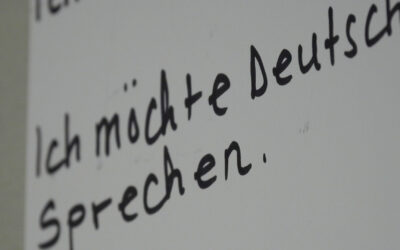 Ich möchte Deutsch
Sprechen.